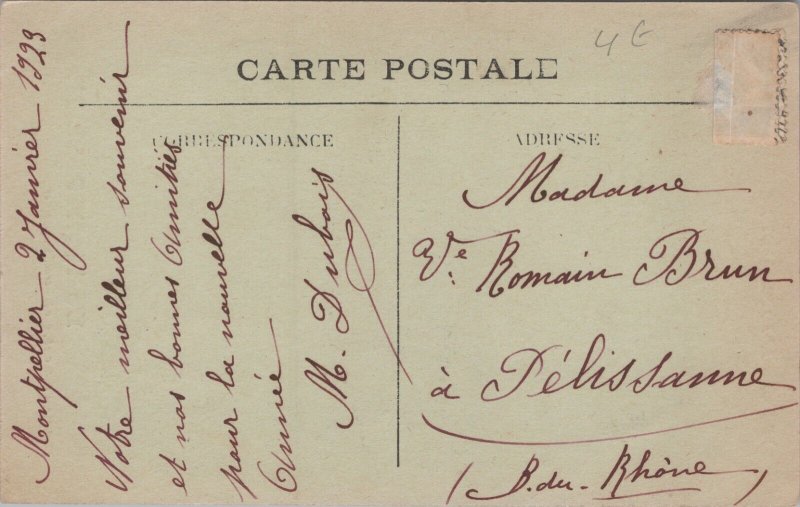 4 €
CARTE POSTALE
CORRESPONDANCE
ADRESSE
Montpellier 2 Janvier 1923
Notre meilleur souvenir
et nos bonnes Amitiés
pour la nouvelle
Année
M. Dubois
Madame
Vve Romain Brun
à Pélissanne
(B. du- Rhône)